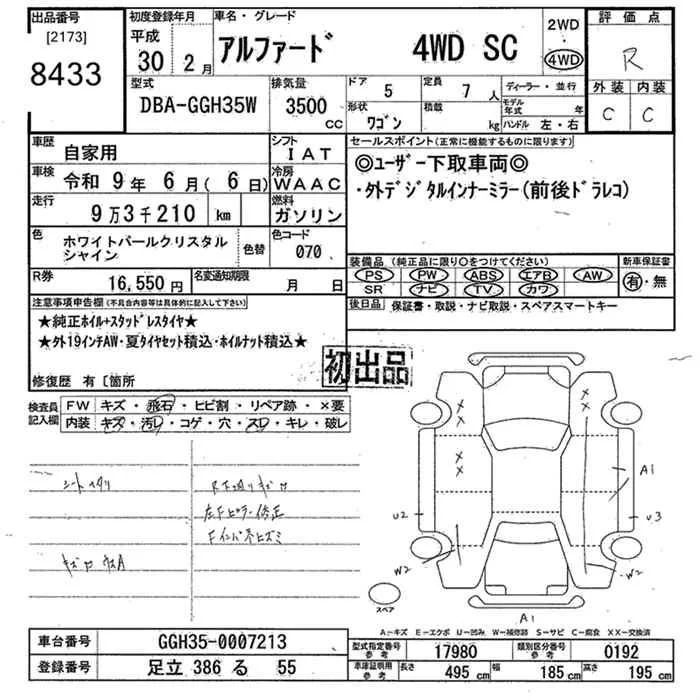 出品番号
[2173]
8433
初度登録年月
平成
30 2月
車名・グレード
アルファード 4WD SC
2WD
・
4WD
評価点
R
外装 内装
C C
型式
DBA-GGH35W
排気量
3500 CC
ドア 5
定員 7 人
形状 ワゴン
積載 kg
ディーラー・並行
モデル年式 年
ハンドル 左・右
車歴 自家用
シフト IAT
車検 令和 9年 6月( 6日)
冷房 WAAC
走行 9万3千210 km
燃料 ガソリン
色 ホワイトパールクリスタル
シャイン
色替
色コード 070
R券 16,550円
名変通知期限 月 日
セールスポイント(正常に機能するものに限ります)
◎ユーザー下取車両◎
・外デジタルインナーミラー(前後ドラレコ)
装備品 (純正品に限り○をつけてください)
PS PW ABS エアB AW
SR ナビ TV カワ
新車保証書
有・無
後日品 保証書・取説・ナビ取説・スペアスマートキー
注意事項申告欄(不具合内容等は具体的に記入して下さい)
★純正ホイル+スタッドレスタイヤ★
★外19インチAW・夏タイヤセット積込・ホイルナット積込★
修復歴 有〔箇所
初出品
検査員記入欄
FW キズ・飛石・ヒビ割・リペア跡・×要
内装 キズ・汚レ・コゲ・穴・スレ・キレ・破レ
R下廻りキズ
左Fピラー修正
X X
X X
A1
U2
U3
W2
W2
A1
スペア
A-キズ E-エクボ U-凹み W-補修跡 S-サビ C-腐食 XX-交換済
車台番号 GGH35-0007213
登録番号 足立 386 る 55
型式指定番号 参考 17980
類別区分番号 参考 0192
車庫証明用 参考 長さ 495 cm 幅 185 cm 高さ 195 cm